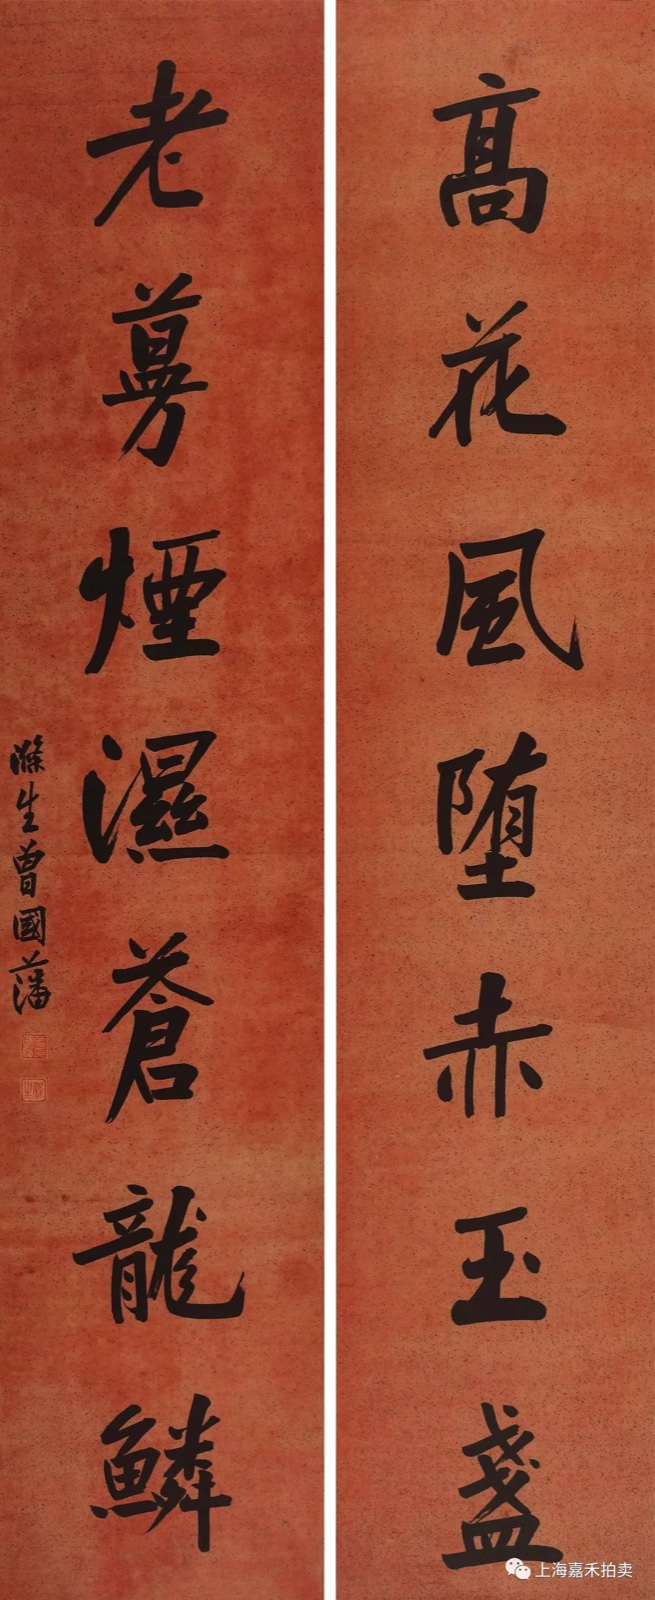 髙花風堕赤玉盞
老蔓煙濕蒼龍鱗
滌生曾國藩
上海嘉禾拍卖